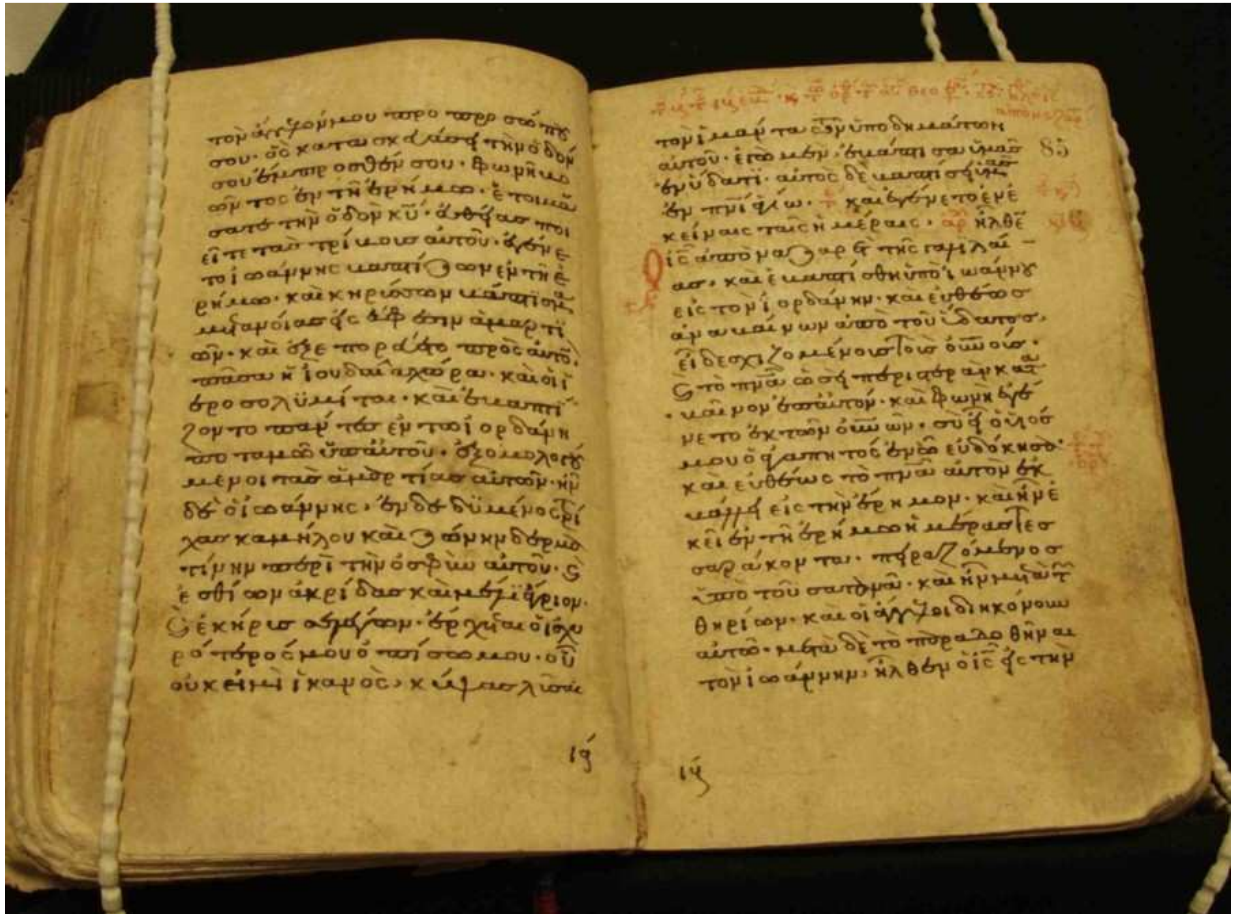 τὸν ἄγγελόν μου προ προσώπου
σου· ὃς κατασκευάσει τὴν ὁδόν
σου ἔμπροσθέν σου· φωνὴ βο
ῶντος ἐν τῇ ἐρήμω· ἑτοιμά
σατε τὴν ὁδὸν κῡ· εὐθείας ποι
εῖτε τὰς τρίβους αὐτοῦ· ἐγένε
το ἰωάννης βαπτίζων ἐν τῇ ἐ
ρήμω· καὶ κηρύσσων βάπτισμα
μετανοίας εἰς ἄφεσιν ἁμαρτι
ῶν· καὶ ἐξεπορεύετο πρὸς αὐτόν·
πᾶσα ἡ ἰουδαία χώρα· καὶ οἱ ἱ
εροσολυμίται· καὶ ἐβαπτί
ζοντο πάντες ἐν τῶ ἰορδάνη
ποταμῶ ὑπ' αὐτοῦ· ἐξομολογού
μενοι τὰς ἁμαρτίας αὐτῶν· ἦν
δὲ ὁ ἰωάννης· ἐνδεδυμένος τρί
χας καμήλου καὶ ζώνην δερμα
τίνην περὶ τὴν ὀσφὺν αὐτοῦ· ϗ
ἐσθίων ἀκρίδας καὶ μέλι ἄγριον·
ϗ ἐκήρυσσε λέγων· ἔρχεται ὁ ἰσχυ
ρότερός μου ὀπίσω μου· οὗ
οὐκ εἰμὶ ἱκανὸς, κύψας λῦσαι
85
τὸν ἱμάντα τῶν ὑποδημάτων
αὐτοῦ· ἐγὼ μὲν, ἐβάπτισα ὑμᾶς
ἐν ὕδατι· αὐτὸς δὲ βαπτίσει ὑμᾶς
ἐν πνῑ ἁγίω· καὶ ἐγένετο ἐν ἐ
κείναις ταῖς ἡμέραις· ἦλθεν
ὁ ις̄ ἀπὸ ναζαρὲτ τῆς γαλιλαί
ας· καὶ ἐβαπτίσθη ὑπὸ ἰωάννου
εἰς τὸν ἰορδάνην· καὶ εὐθέως
ἀναβαίνων ἀπὸ τοῦ ὕδατος,
εἶδε σχιζομένους τοὺς οὐνους·
ϗ τὸ πνᾱ ὡσεὶ περιστερὰν κατα
βαῖνον ἐπ' αὐτόν· καὶ φωνὴ ἐγέ
νετο ἐκ τῶν οὐνων· σὺ εἶ ὁ υἱός
μου ὁ ἀγαπητὸς ἐν ὧ εὐδόκησα·
καὶ εὐθέως τὸ πνᾱ αὐτὸν ἐκ
βάλλει εἰς τὴν ἔρημον· καὶ ἦν ἐ
κεῖ ἐν τῇ ἐρήμω ἡμέρας τεσ
σαράκοντα· πειραζόμενος
ὑπὸ τοῦ σατανᾶ· καὶ ἦν μετὰ τῶν
θηρίων· καὶ οἱ ἄγγελοι διηκόνουν
αὐτῶ· μετὰ δὲ τὸ παραδοθῆναι
τὸν ἰωάννην, ἦλθεν ὁ ις̄ εἰς τὴν